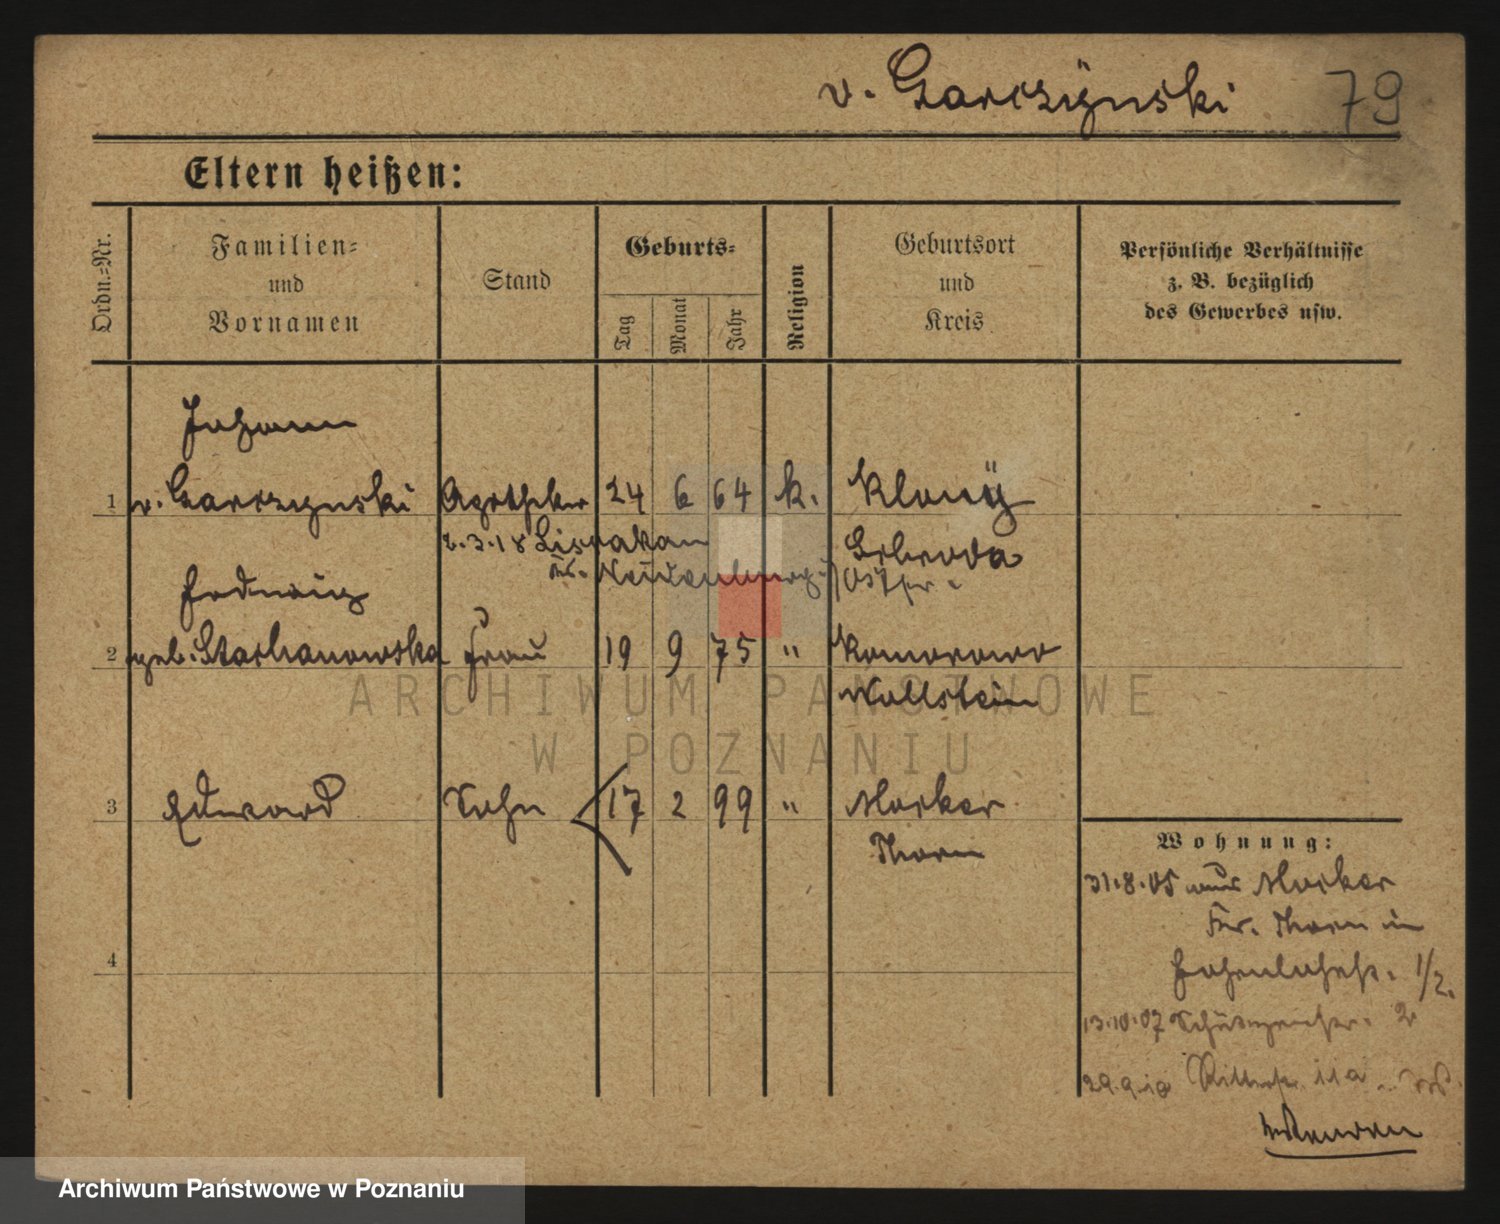 v. Garczÿnski 79
Eltern heißen:
Ordn.=Nr.
Familien=
und
Vornamen
Stand
Geburts=
Tag
Monat
Jahr
Religion
Geburtsort
und
Kreis
Persönliche Verhältnisse
z. B. bezüglich
des Gewerbes usw.
Johann
1 v. Garczynski Apotheker 24 6 64 k. Klony
Schroda
2.3.18
Kr. Neidenburg Ostpr.
Hedwig
2 geb. Stachanowska Frau 19 9 75 " Komorowo
Wollstein
3 Edward Sohn 17 2 99 " Mocker
Thorn
4
Wohnung:
31.8.05 aus Mocker
Kr. Thorn in
Hohenlohestr. 1/2.
13.10.07 2
29.9.10 Ritterstr. 11a
ARCHIWUM PAŃSTWOWE
W POZNANIU
Archiwum Państwowe w Poznaniu